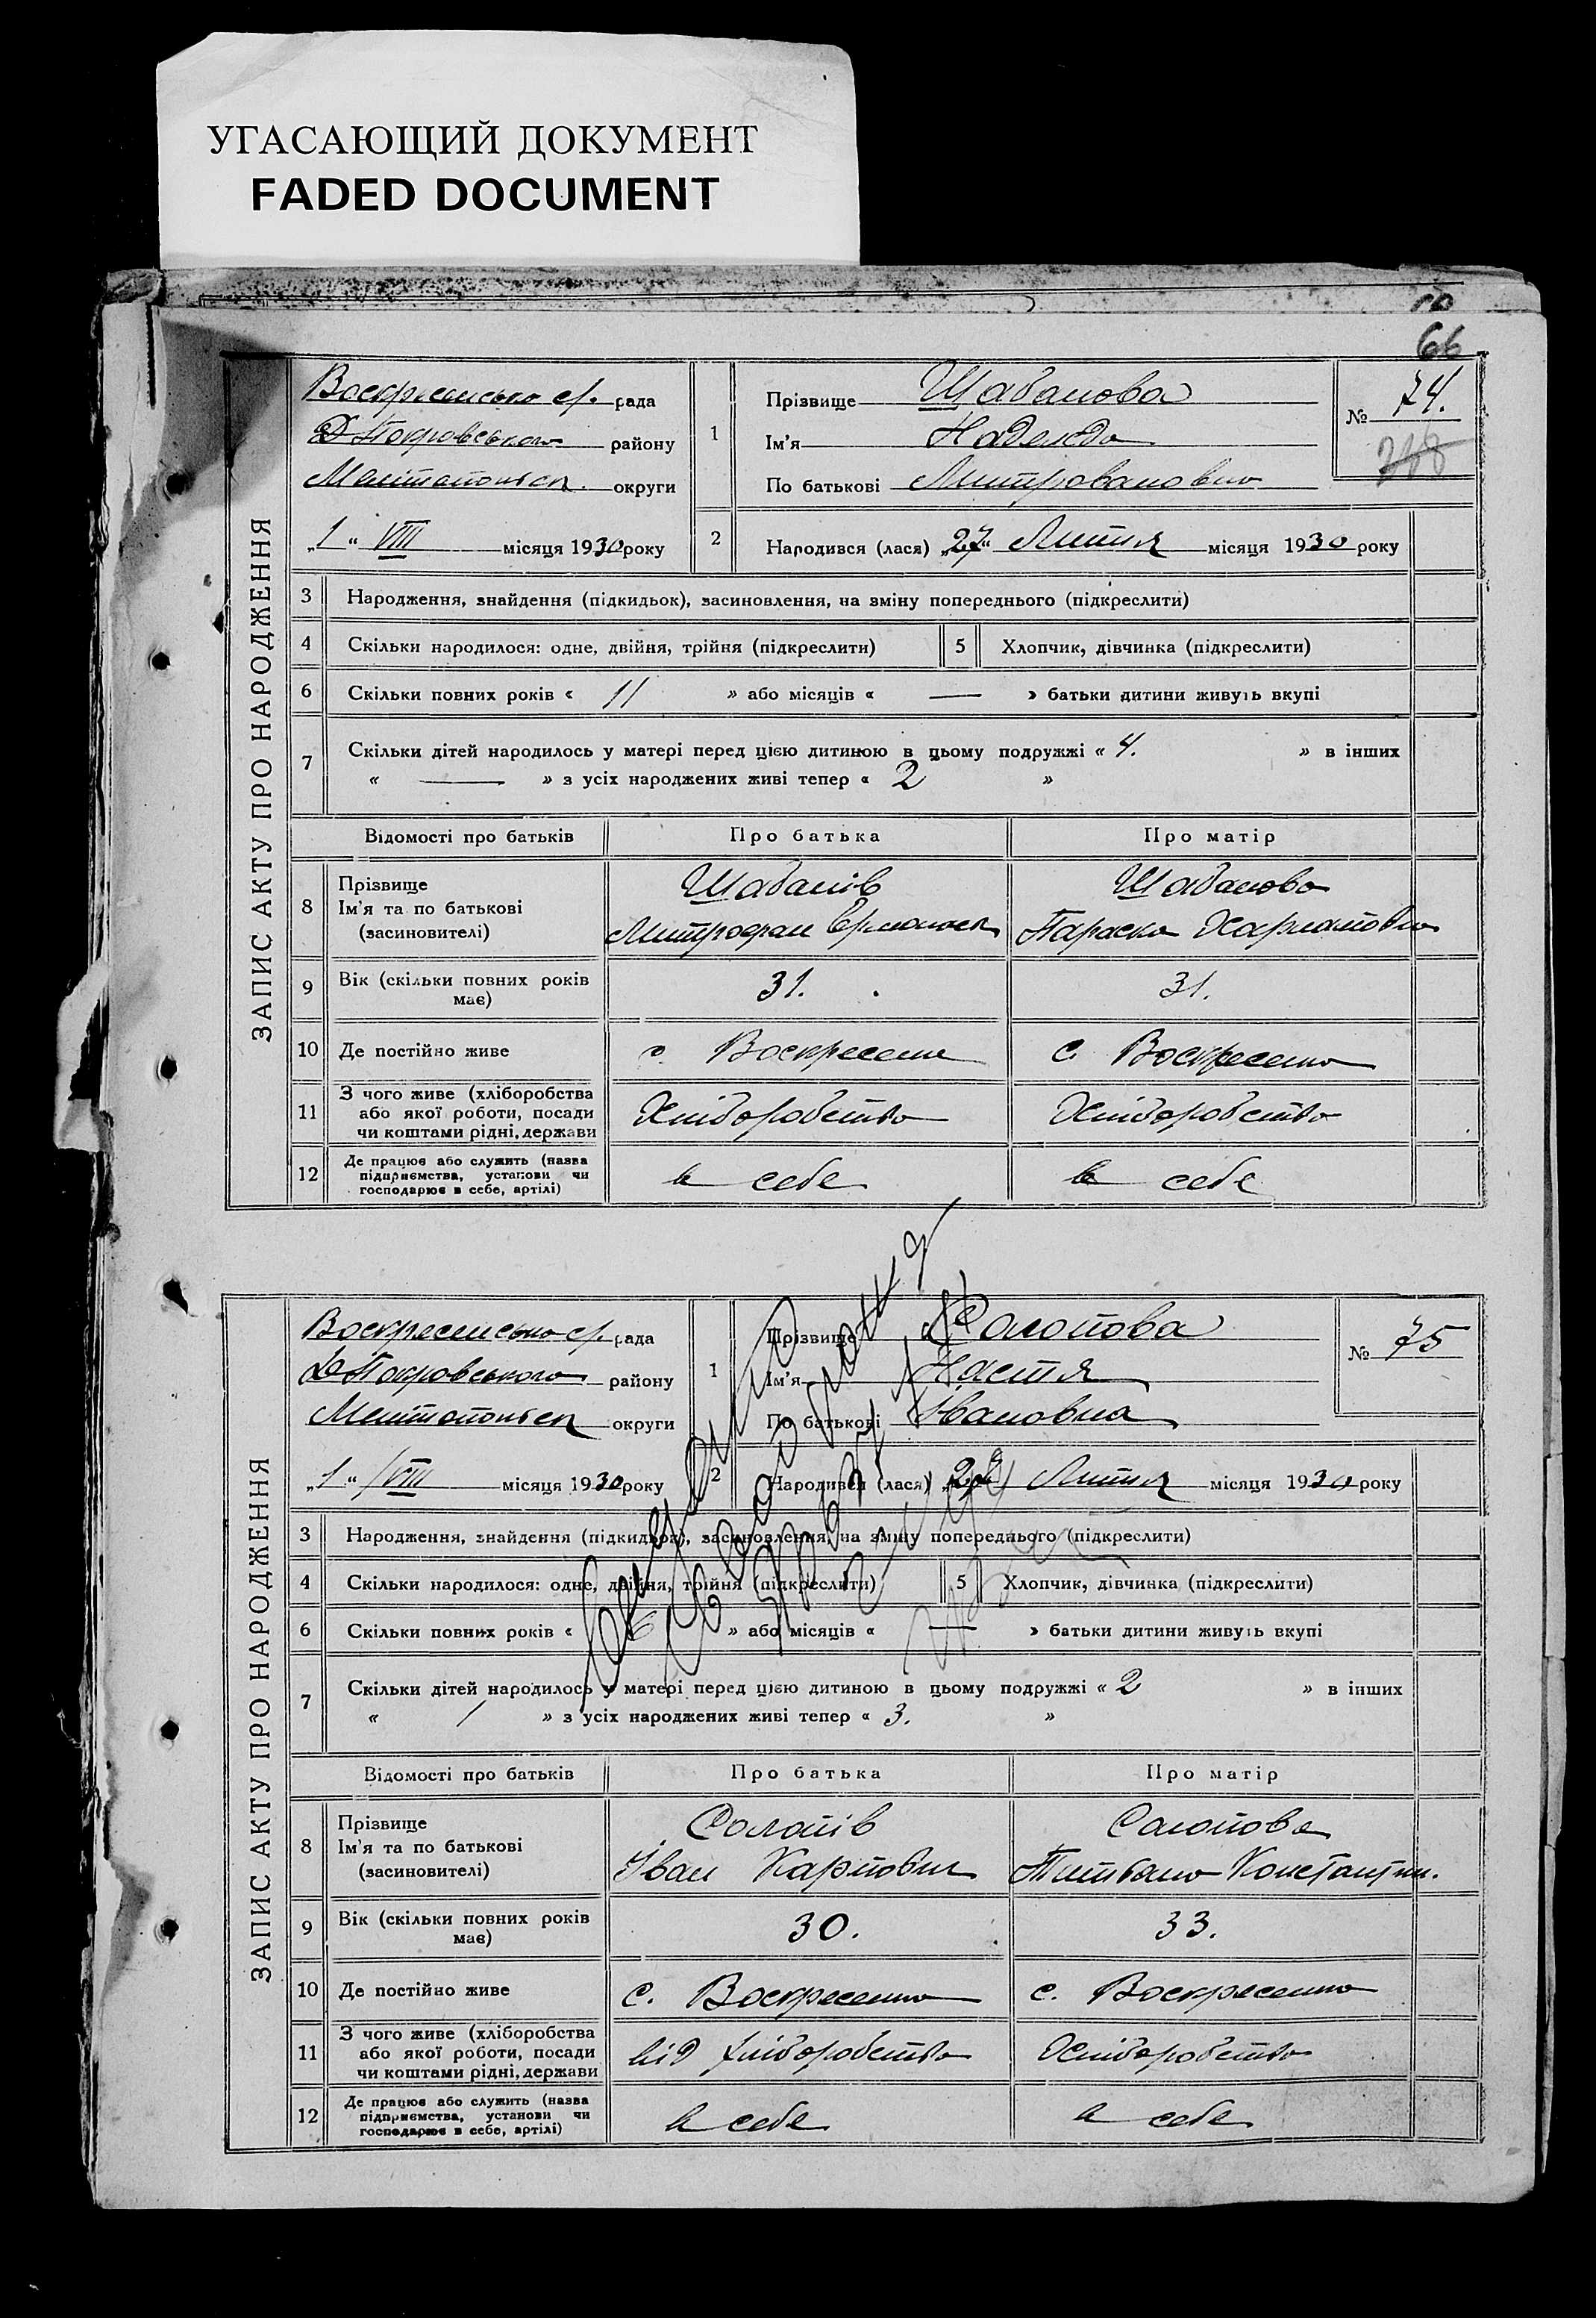 УГАСАЮЩИЙ ДОКУМЕНТ
FADED DOCUMENT
66
ЗАПИС АКТУ ПРО НАРОДЖЕННЯ
рада
Покровського району
округи
„1“ VIII місяця 1930 року
1 Прізвище Шабанова
Ім'я Надежда
По батькові Митровановна
№ 74.
2 Народився (лася) „27“ Липня місяця 1930 року
3 Народження, знайдення (підкидьок), засиновлення, на зміну попереднього (підкреслити)
4 Скільки народилося: одне, двійня, трійня (підкреслити) 5 Хлопчик, дівчинка (підкреслити)
6 Скільки повних років « 11 » або місяців « — » батьки дитини живуть вкупі
7 Скільки дітей народилось у матері перед цією дитиною в цьому подружжі « 4. » в інших
« — » з усіх народжених живі тепер « 2 »
Відомості про батьків Про батька Про матір
8 Прізвище Шабанів Шабанова
Ім'я та по батькові Митрофан Параска Харлановна
(засиновителі)
9 Вік (скільки повних років має) 31. 31.
10 Де постійно живе с. Воскресенка с. Воскресенка
11 З чого живе (хліборобства або якої роботи, посади чи коштами рідні, держави Хліборобства Хліборобства
12 Де працює або служить (назва підприємства, установи чи господарює в себе, артілі) в себе в себе
ЗАПИС АКТУ ПРО НАРОДЖЕННЯ
рада
Покровського району
округи
„1“ VIII місяця 1930 року
1 Прізвище Солопова
Ім'я Настя
По батькові Івановна
№ 75
2 Народився (лася) Липня місяця 1930 року
3 Народження, знайдення (підкидьок), засиновлення, на зміну попереднього (підкреслити)
4 Скільки народилося: одне, двійня, трійня (підкреслити) 5 Хлопчик, дівчинка (підкреслити)
6 Скільки повних років « 6 » або місяців « — » батьки дитини живуть вкупі
7 Скільки дітей народилось у матері перед цією дитиною в цьому подружжі « 2 » в інших
« 1 » з усіх народжених живі тепер « 3. »
Відомості про батьків Про батька Про матір
8 Прізвище Солопів Солопова
Ім'я та по батькові Іван Карпович Константин.
(засиновителі)
9 Вік (скільки повних років має) 30. 33.
10 Де постійно живе с. Воскресенка с. Воскресенка
11 З чого живе (хліборобства або якої роботи, посади чи коштами рідні, держави від хліборобства Хліборобства
12 Де працює або служить (назва підприємства, установи чи господарює в себе, артілі) в себе в себе